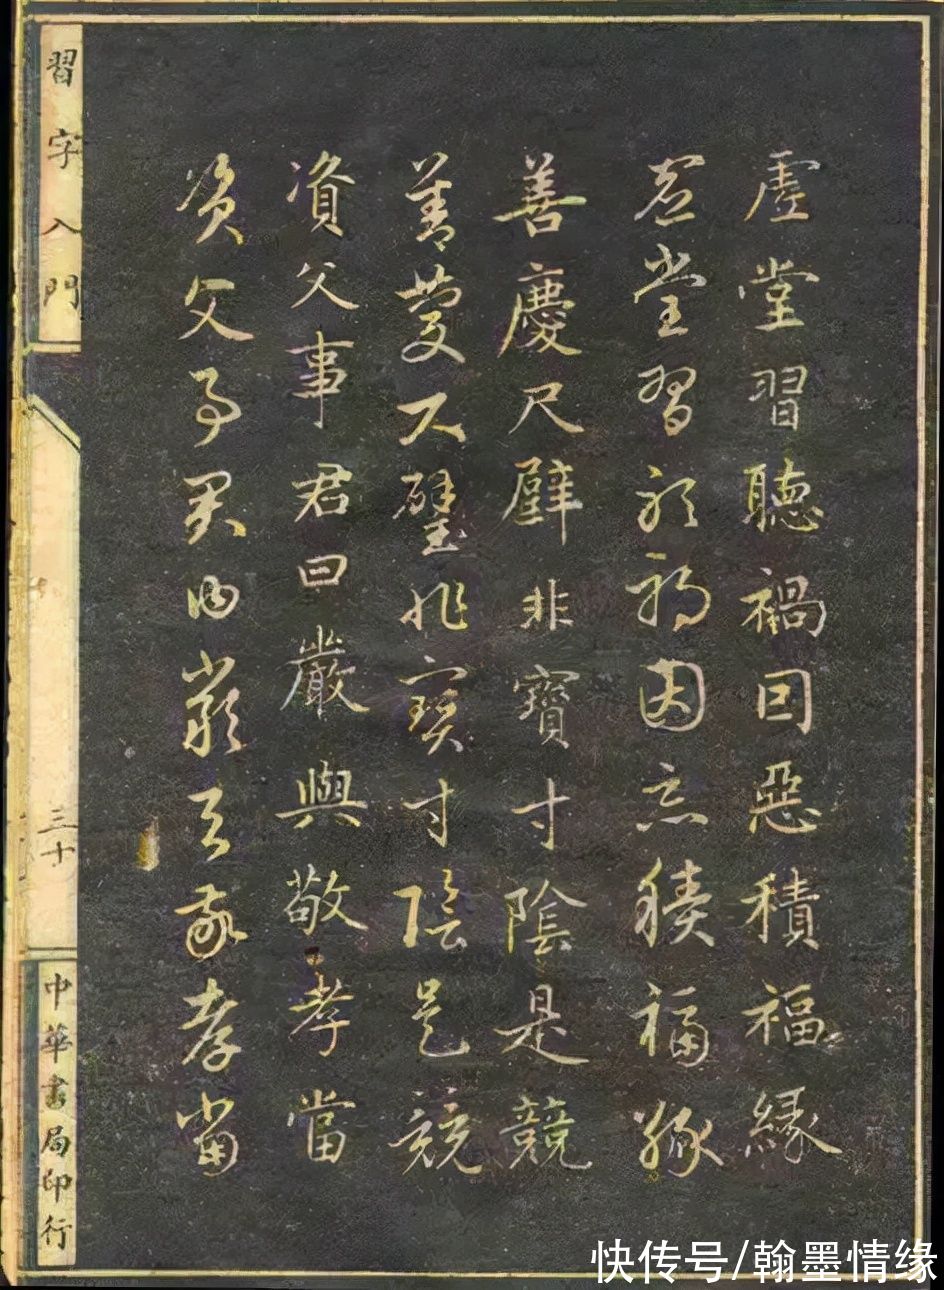 虛堂習聽禍因惡積福緣
虛堂習聽禍因惡積福緣
善慶尺璧非寶寸陰是競
善慶尺璧非寶寸陰是競
資父事君曰嚴與敬孝當
資父事君曰嚴與敬孝當
習字入門
三十
中華書局印行
快传号/翰墨情缘